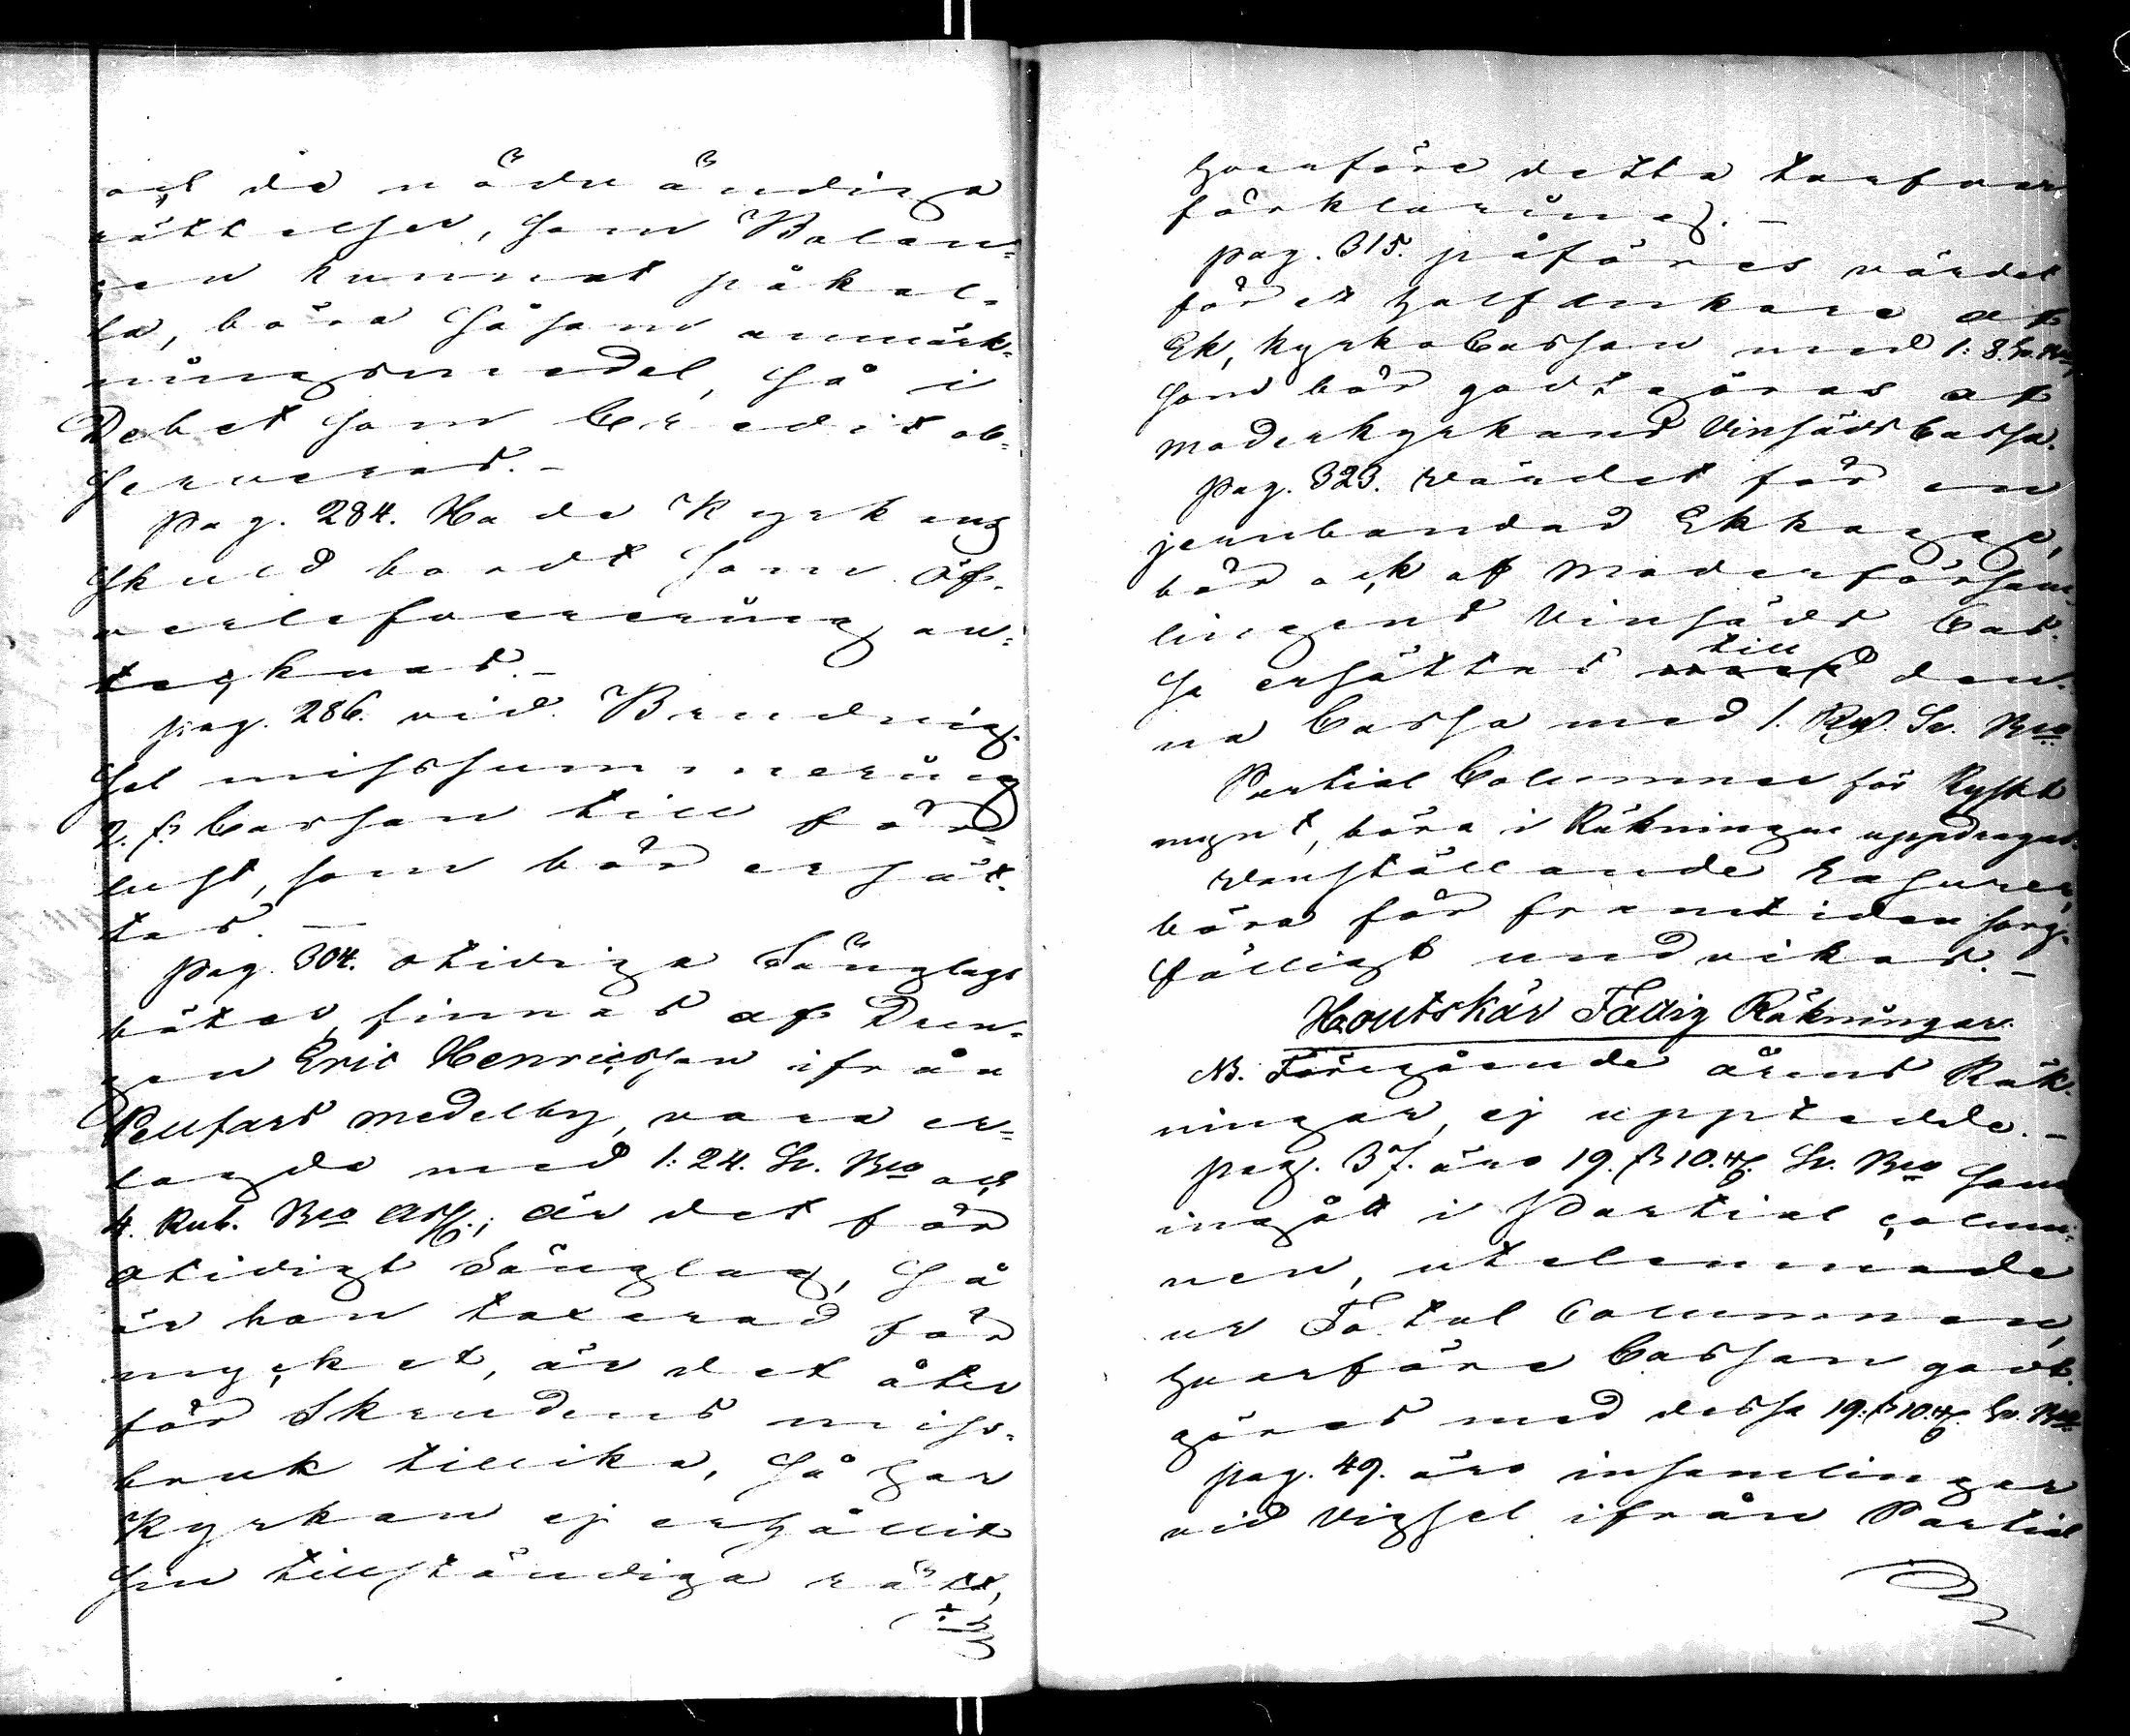 och de nödvändiga
rättelser, som Balan-
cen kunnat påkal-
la, böra såsom anmärk-
ningsmedel, så i
Debet som Credit ob-
serveras. -
pag. 284. Hade Kyrkans
skuld bordt som öf-
verlefverering an-
tecknas. -
pag. 286. vid Brudvig-
sel missummering
2. ß Cassan till för-
lust, som bör ersät-
tas. -
pag. 304. otidiga Sänglags
böter, finnas af Dren-
gen Eric Henricsson ifrån
Pellfars medelby, vara er-
lagde med 1: 24. Sv. Bco och
4. Rub. Bco Ass.; är det för
otidigt Sänglag, så
är han taxerad för
mycket, är det åter
för Skrudens miss-
bruk tillika, så har
Kyrkan ej erhållit
sin tillständiga rätt,
hvarföre detta tarfvar
förklaring. -
pag. 315. påföres värdet
för et halfankare af
Ek, kyrkoCassan med 1: 8. Sv. Bco,
som bör godtgöras af
moderkyrkans Vinsäds Cassa.
pag. 323. värdet för en
jernbandad Ekkagge,
bör ock af Moderförsam-
lingens Vinsäds Cas-
sa ersättas till den-
na Cassa med 1. Rd. Sv. Bco
Partial Columner för Ryskt
mynt, böra i Räkningen uppdragas.
Vanställande Rasurer,
böra för framtiden sorg-
fälligt undvikas. -
Houtskär Fattig Räkningar.
NB. Föregående årens Räk-
ningar, ej upptedde. -
pag. 37. äro 19. ß 10. rf. Sv. Bco som
ingått i Partial colum-
nen, utelemnade
ur Total Columnen,
hvarföre Cassan godt-
göres med dessa 19: ß 10. rf. Sv. Bco
pag. 49. äro insamlingar
vid Vigsel ifrån Partial